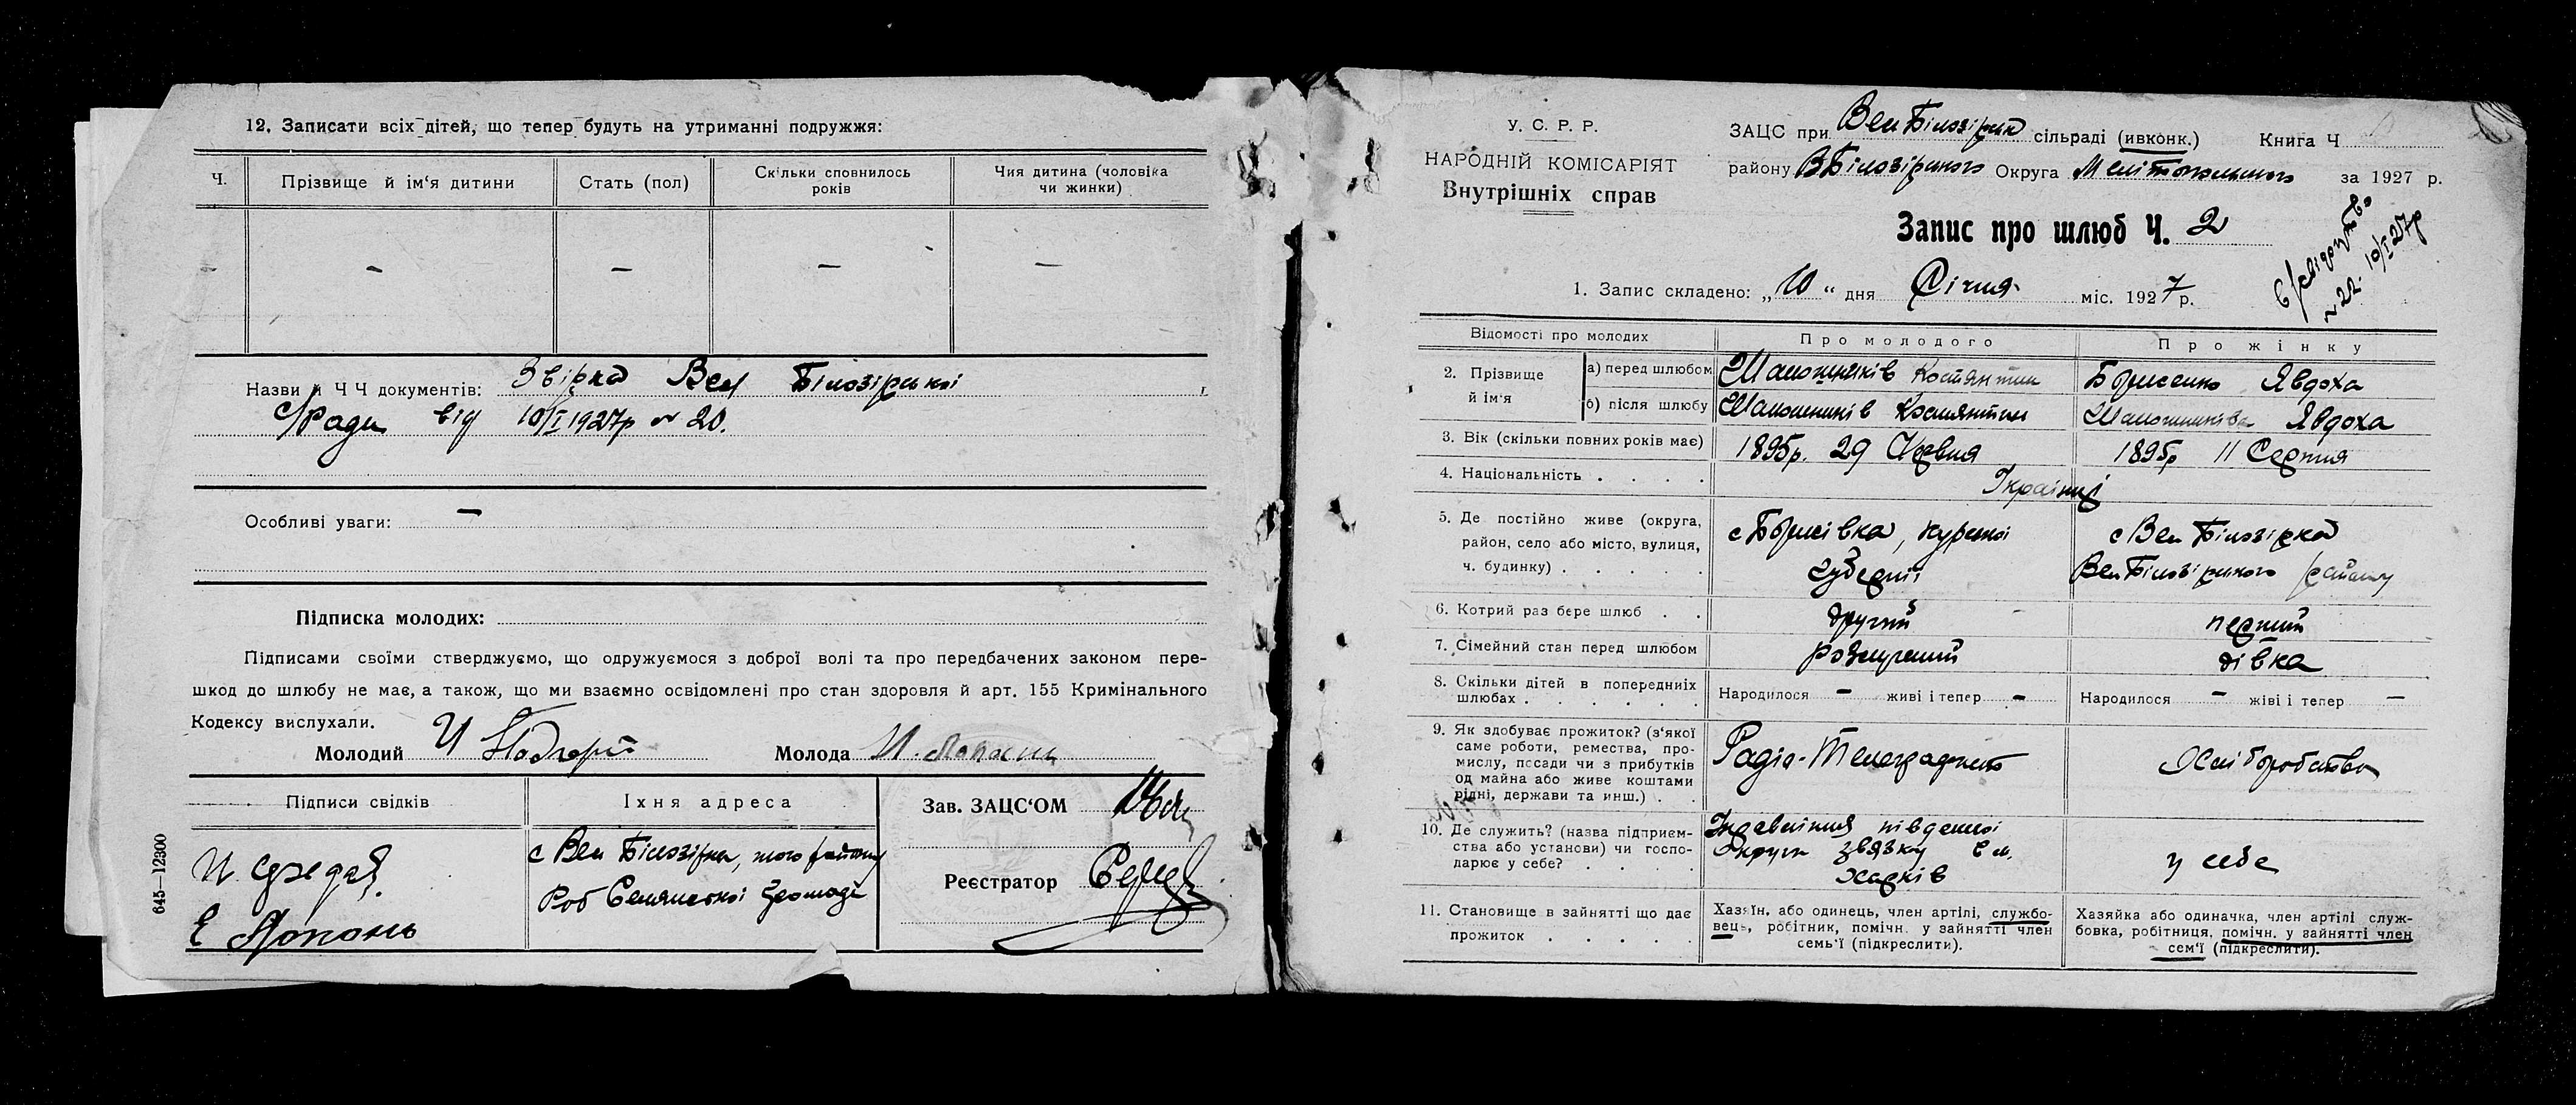 12. Записати всіх дітей, що тепер будуть на утриманні подружжя:
Ч.
Прізвище й ім'я дитини
Стать (пол)
Скільки сповнилось
років
Чия дитина (чоловіка
чи жинки)
—
—
—
—
Назви й Ч Ч документів: Звірка Вел Білозірської
с/Ради від 10/I 1927р № 20.
Особливі уваги: —
Підписка молодих:
Підписами своїми стверджуємо, що одружуємося з доброї волі та про передбачених законом пере-
шкод до шлюбу не має, а також, що ми взаємно освідомлені про стан здоровля й арт. 155 Кримінального
Кодексу вислухали.
Молодий
Молода
Підписи свідків
Їхня адреса
с Вел Білозірка, того району
Роб Селянської громаді
Е
Зав. ЗАЦС'ОМ
Реєстратор
645—12300
У. С. Р. Р.
НАРОДНІЙ КОМІСАРІЯТ
Внутрішніх справ
ЗАЦС при Вел Білозірск сільраді (ивконк.) Книга Ч
району ВБілозірського Округа Мелітопольського за 1927 р.
Запис про шлюб Ч. 2
№ 22. 10/I 27р
1. Запис складено: „10“ дня Січня міс. 1927 р.
Відомості про молодих
Про молодого
Про жінку
2. Прізвище
й ім'я
а) перед шлюбом
Шапошніків Костянтин
Борисенко Явдоха
б) після шлюбу
Шапошників Костянтин
Шапошниківа Явдоха
3. Вік (скільки повних років має)
1895р. 29 Червня
1895р 11 Серпня
4. Національність . . . .
Українці
5. Де постійно живе (округа,
район, село або місто, вулиця,
ч. будинку) . . . . .
с Борисівка, Курської
губерні
с Вел Білозірка
Вел Білозірского району
6. Котрий раз бере шлюб . .
другий
перший
7. Сімейний стан перед шлюбом
дівка
8. Скільки дітей в попередніх
шлюбах . . . . . .
Народилося — живі і тепер —
Народилося — жіві і тепер —
9. Як здобуває прожиток? (з'якої
саме роботи, ремества, про-
мислу, посади чи з прибутків
од майна або живе коштами
рідні, держави та инш.) . .
Радіо-Телеграфист
Хліборобство
10. Де служить? (назва підприєм-
ства або установи) чи госпо-
дарює у себе? . . . .
південої
Округи звязку в м.
Харків
у себе
11. Становище в зайнятті що дає
прожиток . . . . .
Хазяїн, або одинець, член артілі, службо-
вець, робітник, помічн. у зайнятті член
семь'ї (підкреслити).
Хазяйка або одиначка, член артілі служ-
бовка, робітниця, помічн. у зайнятті член
сем'ї (підкреслити).